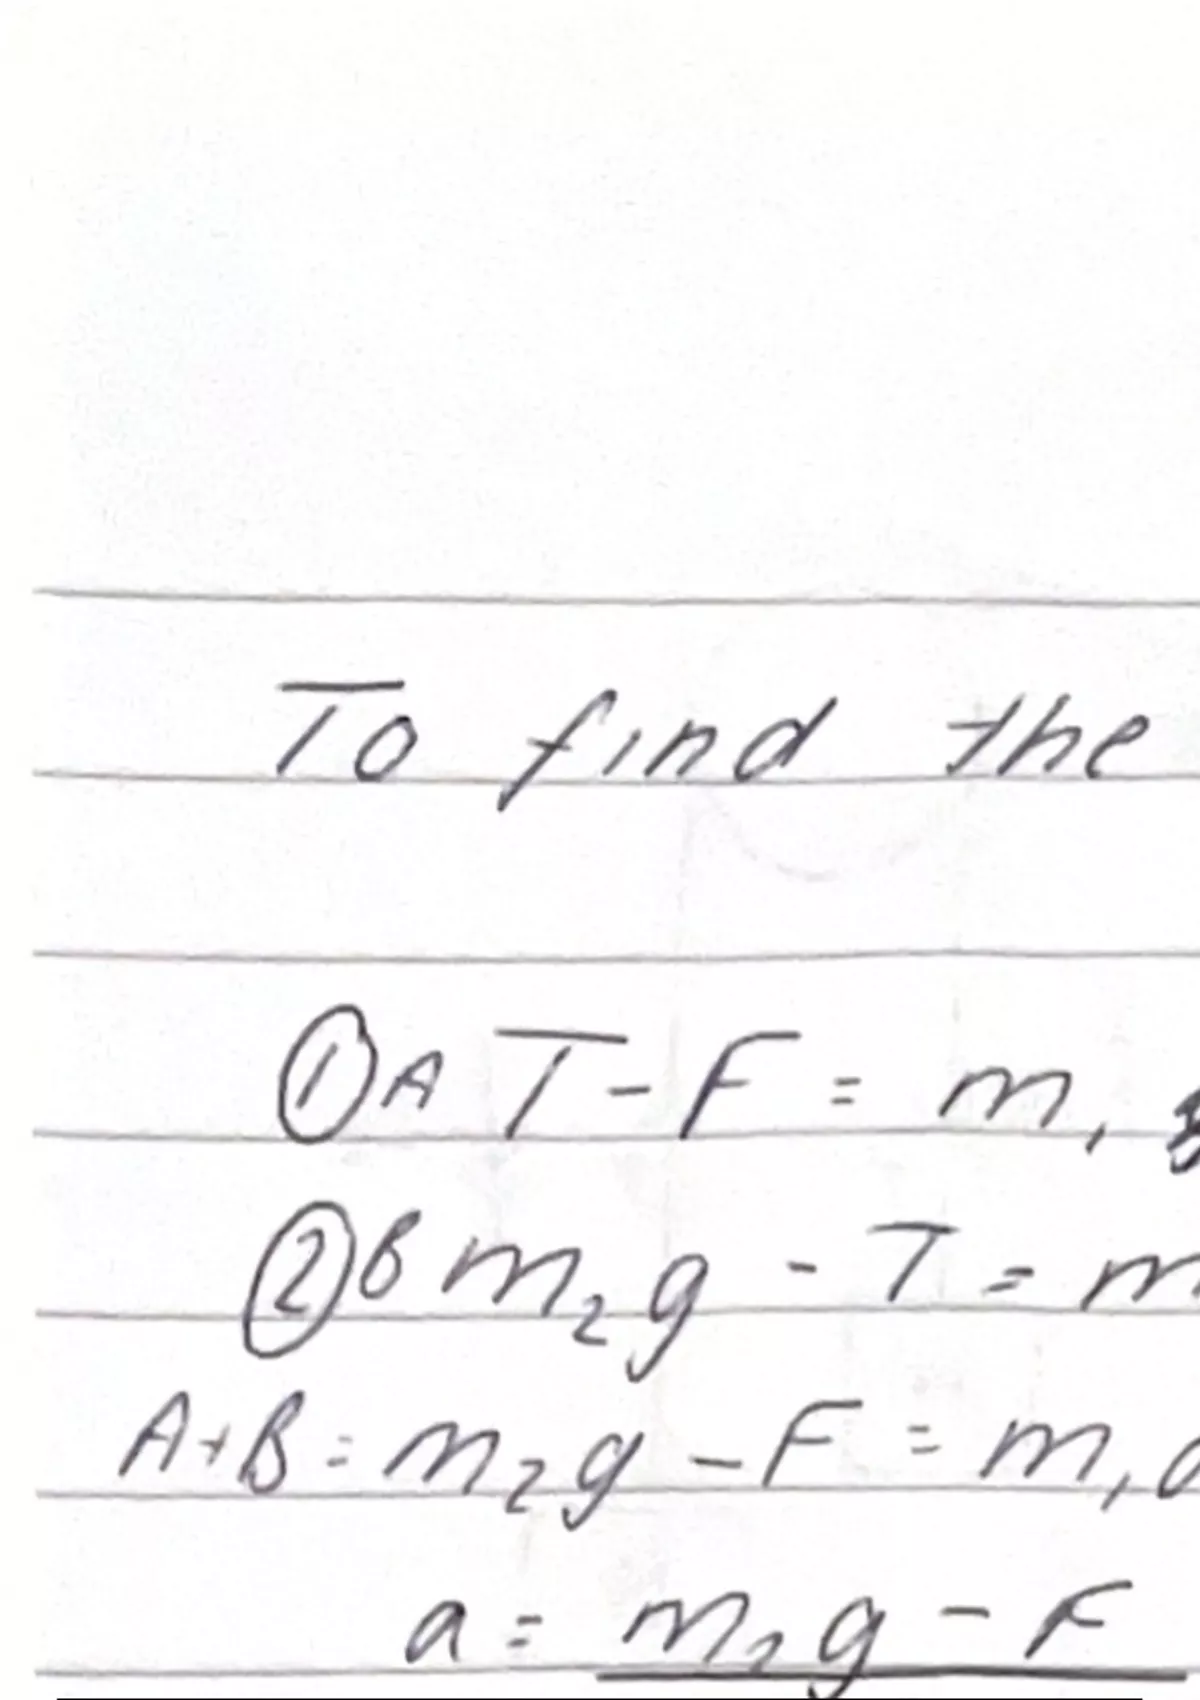 To find the
① A T - F = m₁
② B m₂g - T = m
A+B = m₂g - F = m₁a
a = m₂g - F